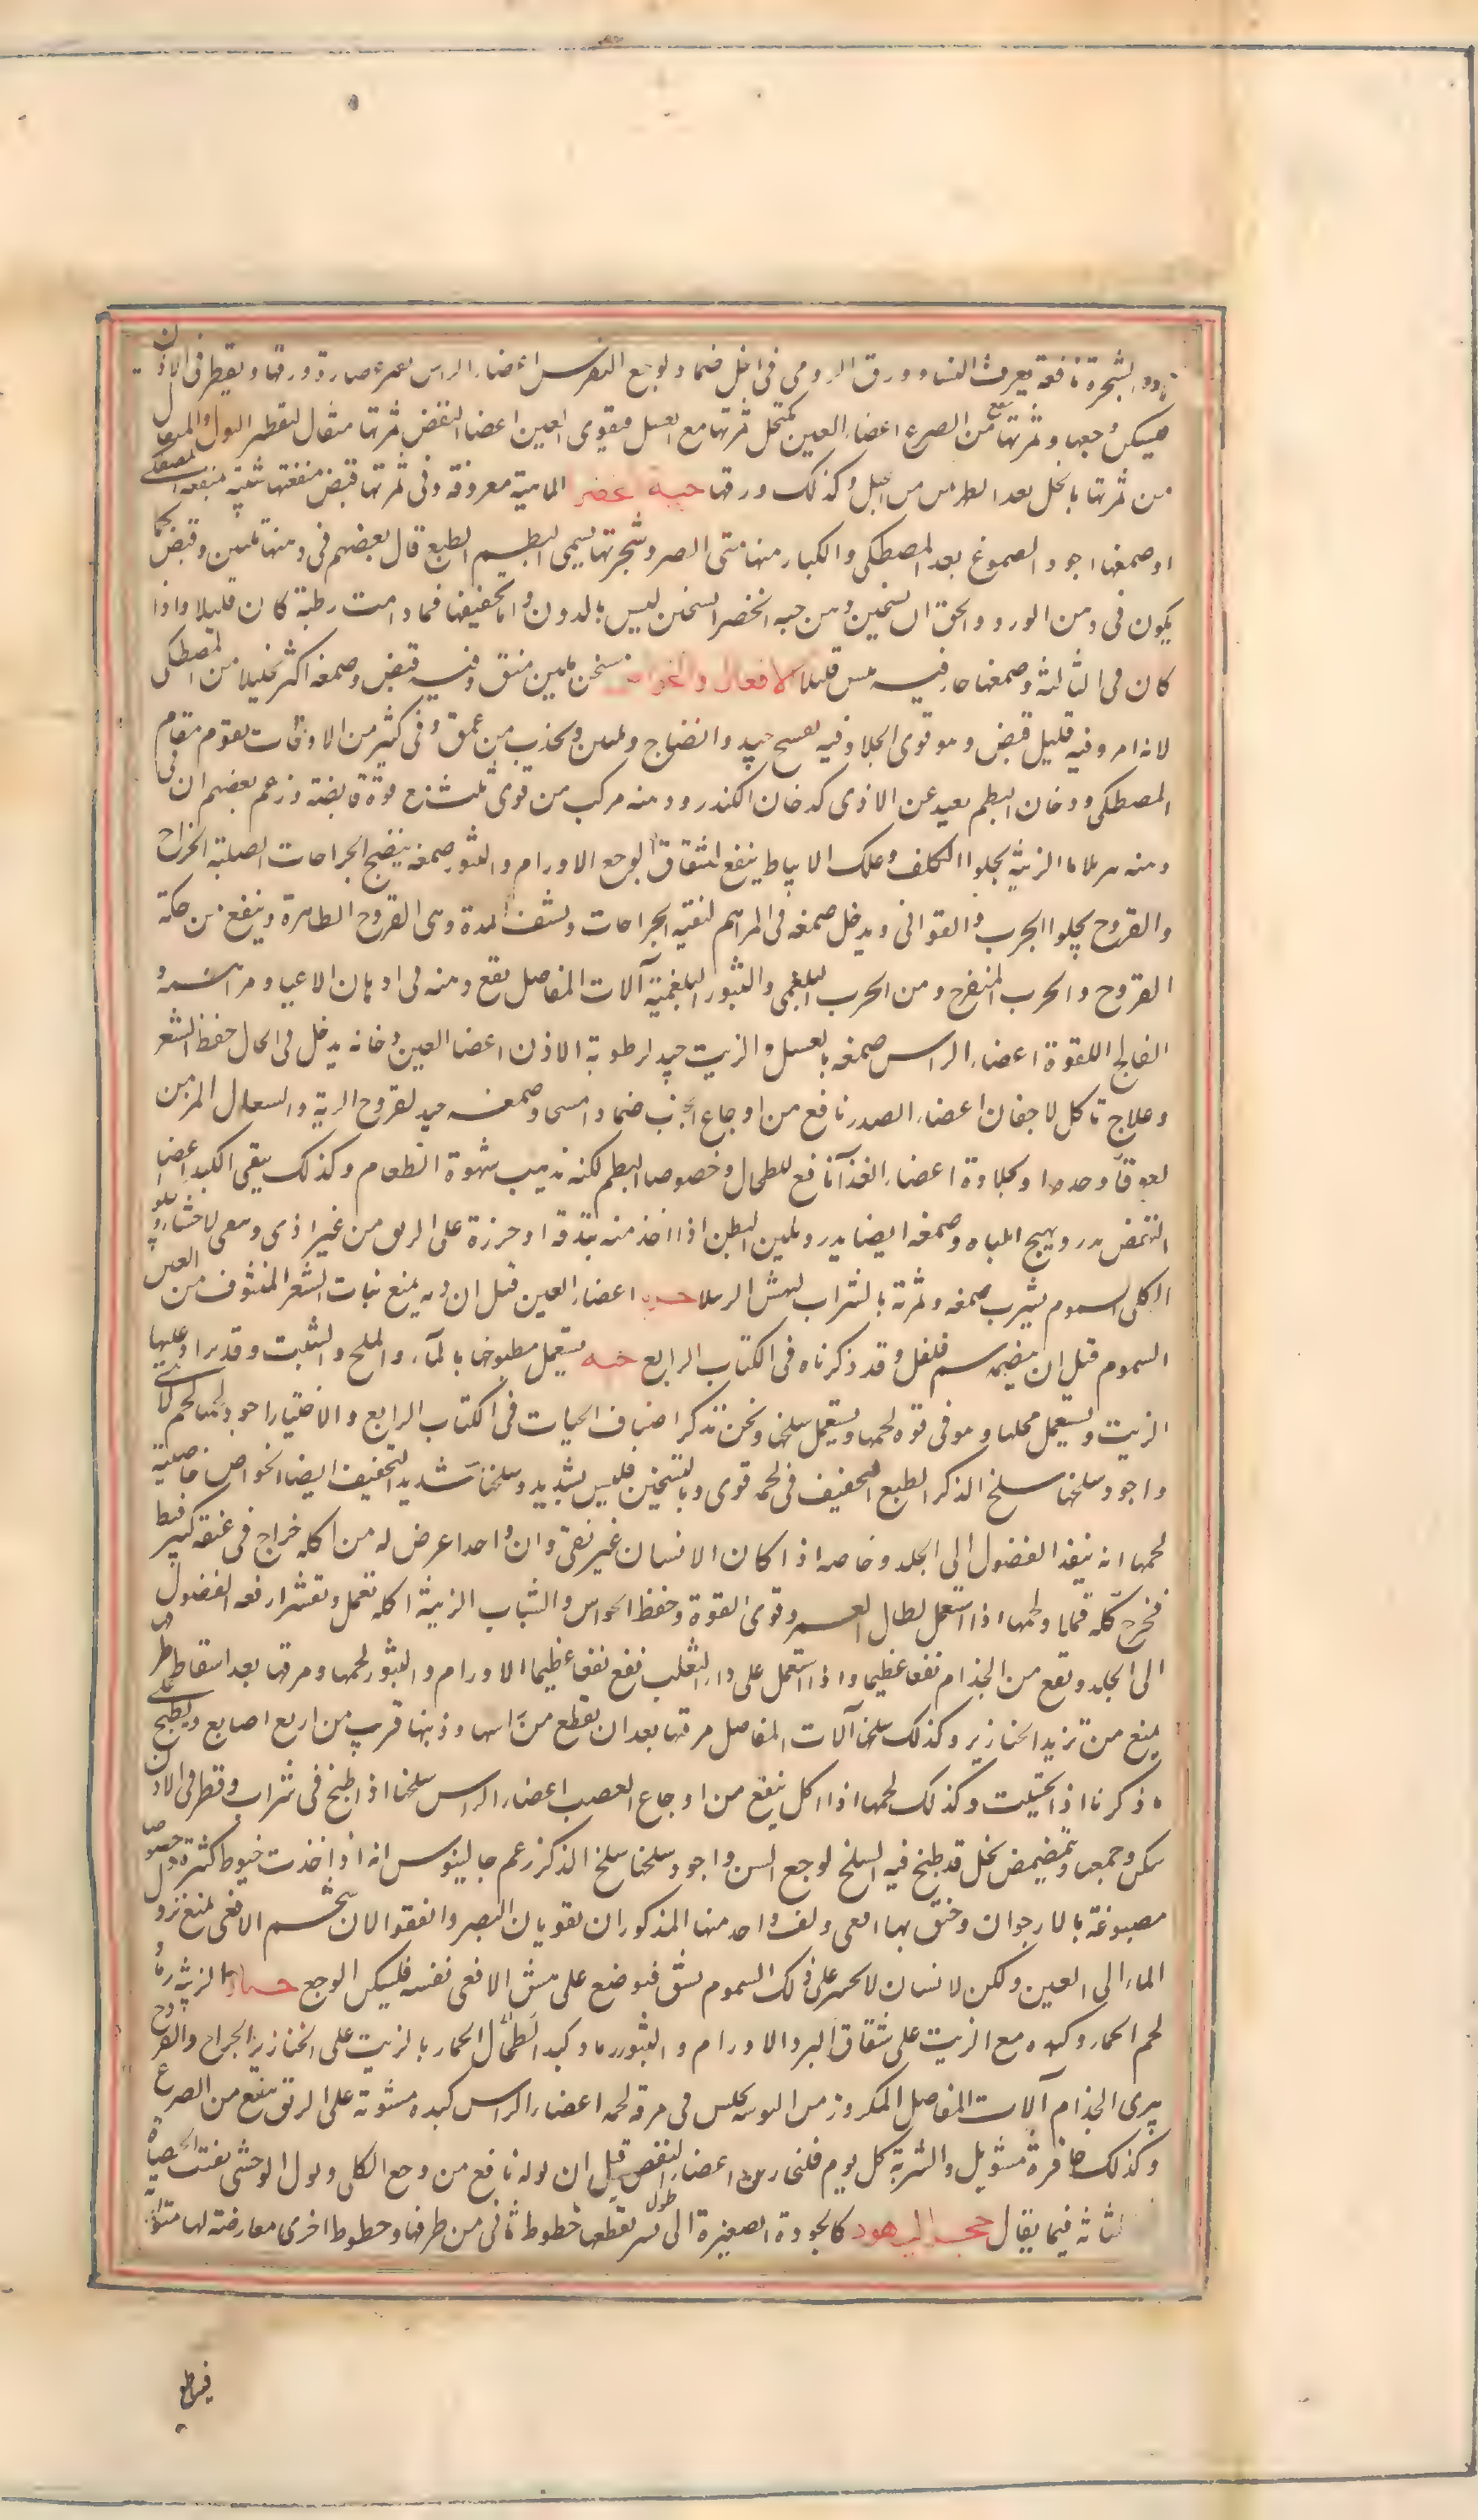 الشجرة نافعة بعرق النسا وورق الرومي في الخل ضماد لوجع النقرس اعضاء الراس عصارة ورقها ويقطر في الاذن
فيسكن وجعها وثمرتها تنفع من الصرع اعضاء العين يكتحل ثمرتها مع العسل فيقوى العين اعضا النفض ثمرتها مثقال لتقطير البول والمثقال
من ثمرتها بالخل بعد الطمث من الحبل وكذلك ورقها حبة خضرا الماهية معروفة وفي ثمرتها قبض منفعتها شبيه بمنفعة المصطكى
او صمغها اجود الصموغ بعد المصطكى والكبار منها وشجرتها يسمى البطم الطبع قال بعضهم في دهنها تليين وقبض كما
يكون في دهن الورد والحق ان تسخين دهن حبه الخضر السخن ليس بالدون واما تجفيفها فما دامت رطبة كان قليلا واذا
كان في الثالثة وصمغها حار فيه يبس قليلا الافعال والخواص مسخن ملين منق وفيه قبض وصمغه اكثر تحليلا من المصطكى
لانه امر وفيه قليل قبض وهو قوى الجلا وفيه جيد وانضاج وتليين ويجذب من عمق وفي كثير من الاوقات يقوم مقام
المصطكى ودخان البطم بعيد عن الاذى كدخان الكندر ودهنه مركب من قوى ثلث مع قوة قابضة وزعم بعضهم ان في
دهنه الزينة يجلوا الكلف وعلك الانباط ينفع لشقاق الوجه الاورام والبثور صمغه ينضج الجراحات الصلبة الجراح
والقروح يجلوا الجرب والقوافى ويدخل صمغه في المراهم لتنقية الجراحات ونشف المدة وهى القروح الظاهرة وينفع من حكة
القروح والجرب المتقرح ومن الجرب البلغمى والبثور البلغمية آلات المفاصل يقع دهنه في ادهان الاعياء
الفالج اللقوة اعضاء الراس صمغه بالعسل والزيت جيد لرطوبة الاذن اعضا العين دخانه يدخل في اكحال حفظ الشعر
وعلاج تاكل الاجفان اعضاء الصدر نافع من اوجاع الجنب ضمادا ومسحا وصمغه جيد لقروح الرية والسعال المزمن
لعوقا وحدها وبحلاوة اعضاء الغذا نافع للطحال وخصوصا البطم لكنه يذهب شهوة الطعام وكذلك ينقى الكبد اعضا
النفض يدر ويهيج الباه وصمغه ايضا يدر ويلين البطن اذا اخذ منه بندقة او جوزة على الريق من غير اذى وينقى الاحشاء ويجلو
الكلى السموم يشرب صمغه وثمرته بالشراب لنهش الرتيلا اعضاء العين قيل ان دمه يمنع نبات الشعر المنتوف من العين
السموم قيل ان بيضه سم فلفل وقد ذكرناه في الكتاب الرابع حية يستعمل مطبوخا بالماء والملح والشبت وقد يزاد عليها
الزيت ويستعمل ملحها وهو في قوة لحمها ويستعمل سلخها ونحن نذكر اصناف الحيات في الكتاب الرابع والاختيار اجود لحمها لحم الانثى
واجود سلخها سلخ الذكر الطبع التجفيف في لحمه قوى وبالتسخين فليس بشديد وسلخها شديد التجفيف ايضا الخواص خاصية
لحمها انه ينفذ الفضول الى الجلد وخاصه اذا كان الانسان غير نقى وان واحدا عرض له من اكله خراج في عنقه كبير فبط
فخرج كله قملا ولحمها اذا استعمل اطال العمر وقوى القوة وحفظ الحواس والشباب الزينة اكله تعمل وتقشر ارفعه الفضول
الى الجلد وتقع من الجذام نفعا عظيما واذا استعمل على داء الثعلب نفع نفعا عظيما الاورام والبثور لحمها ومرقها بعد اسقاط طرفى
يمنع من تزيد الخنازير وكذلك سلخها آلات المفاصل مرقتها بعد ان تقطع من راسها وذنبها قريب من اربع اصابع وتطبخ على
ما ذكرنا اذا تحسيت وكذلك لحمها اذا اكل ينفع من اوجاع العصب اعضاء الراس سلخها اذا طبخ في شراب وقطر في الاذن
سكن وجعها وتمضمض بخل قد طبخ فيه السلخ لوجع السن واجود سلخها سلخ الذكر زعم جالينوس انه اذا اخذت خيوط كثيرة وخصوصا
مصبوغة بالارجوان وخنق بها افعى ولف واحد منها المذكوران يقويان البصر واتفقوا الان شحم الافعى يمنع نزول
الماء الى العين ولكن الانسان لا يجسر على ذلك السموم يشق فيوضع على نهش الافعى نفسه فليسكن الوجع حمار الزينة رماد
لحم الحمار وكبده مع الزيت على شقاق البرد الاورام والبثور رماد كبد الحمار بالزيت على الخنازير الجراح والقروح
يبرى الجذام آلات المفاصل المكزوز من اليبوسة يجلس في مرقة لحمه اعضاء الراس كبده مشوية على الريق ينفع من الصرع
وكذلك حافره مشويا والشربة كل يوم فلنجاران اعضاء النفض قيل ان بوله نافع من وجع الكلى وبول الوحشى يفتت الحصاة
المثانة فيما يقال حجر اليهود كالجوزة الصغيرة الى طول يسير يقطعها خطوط ثانى من طرفها وخطوط اخرى معارضة لها